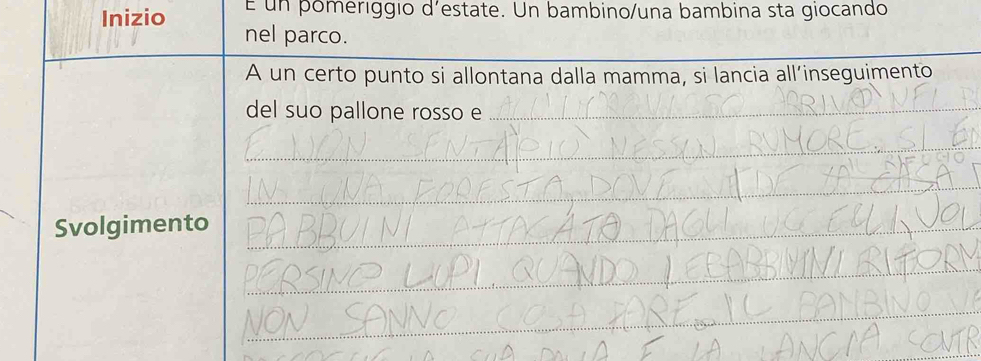 Inizio
È un pomeriggio d'estate. Un bambino/una bambina sta giocando
nel parco.
A un certo punto si allontana dalla mamma, si lancia all'inseguimento
del suo pallone rosso e ARRIVÒ NEL
E NON SENTÀ PIÙ NESSUN RUMORE. SI
IN UNA FORESTA, DOVE VEDE
RIFUGIO
Svolgimento
DA BBUINI ATTACATO DAGLI UCELLI, VOL
PERSINO LUPI. QUANDO I BABBUINI RITORN
NON SANNO COSA FARE. IL BAMBINO
SUA PALLA E LA LANCIA CONTR